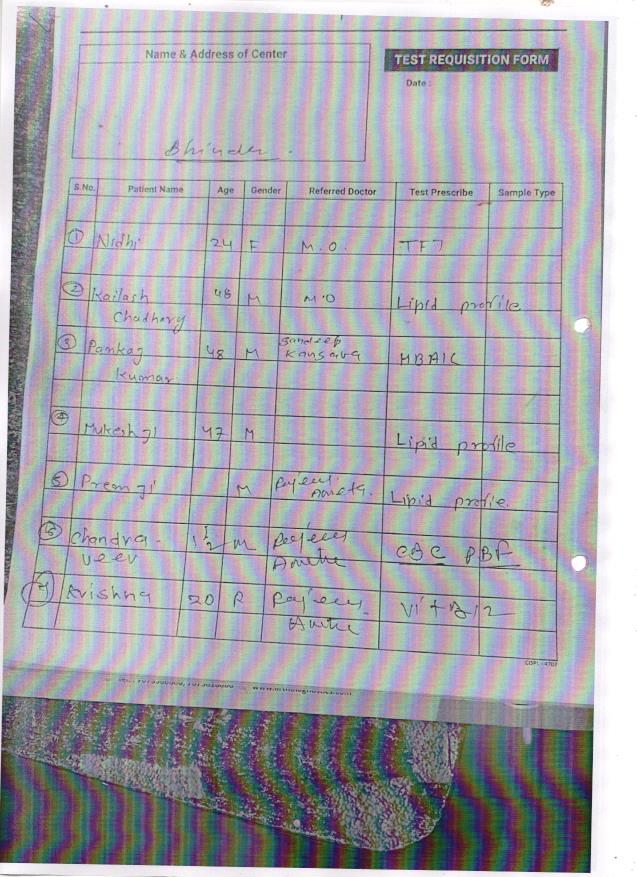 Name & Address of Center
TEST REQUISITION FORM
Date :
Bhinder.
S.No. Patient Name Age Gender Referred Doctor Test Prescribe Sample Type
1 Nidhi 24 F M.O. TFT
2 Kailash 48 M M.O Lipid profile
Chadhary
3 Pankaj 48 M Sandeep Kansara HBA1C
Kumar
4 Mukesh ji 47 M Lipid profile
5 Prem ji M Ameta. Lipid profie.
6 Chandra- 1 1/2 M CBC PBF
veer
7 Krishna 20 Vit B12